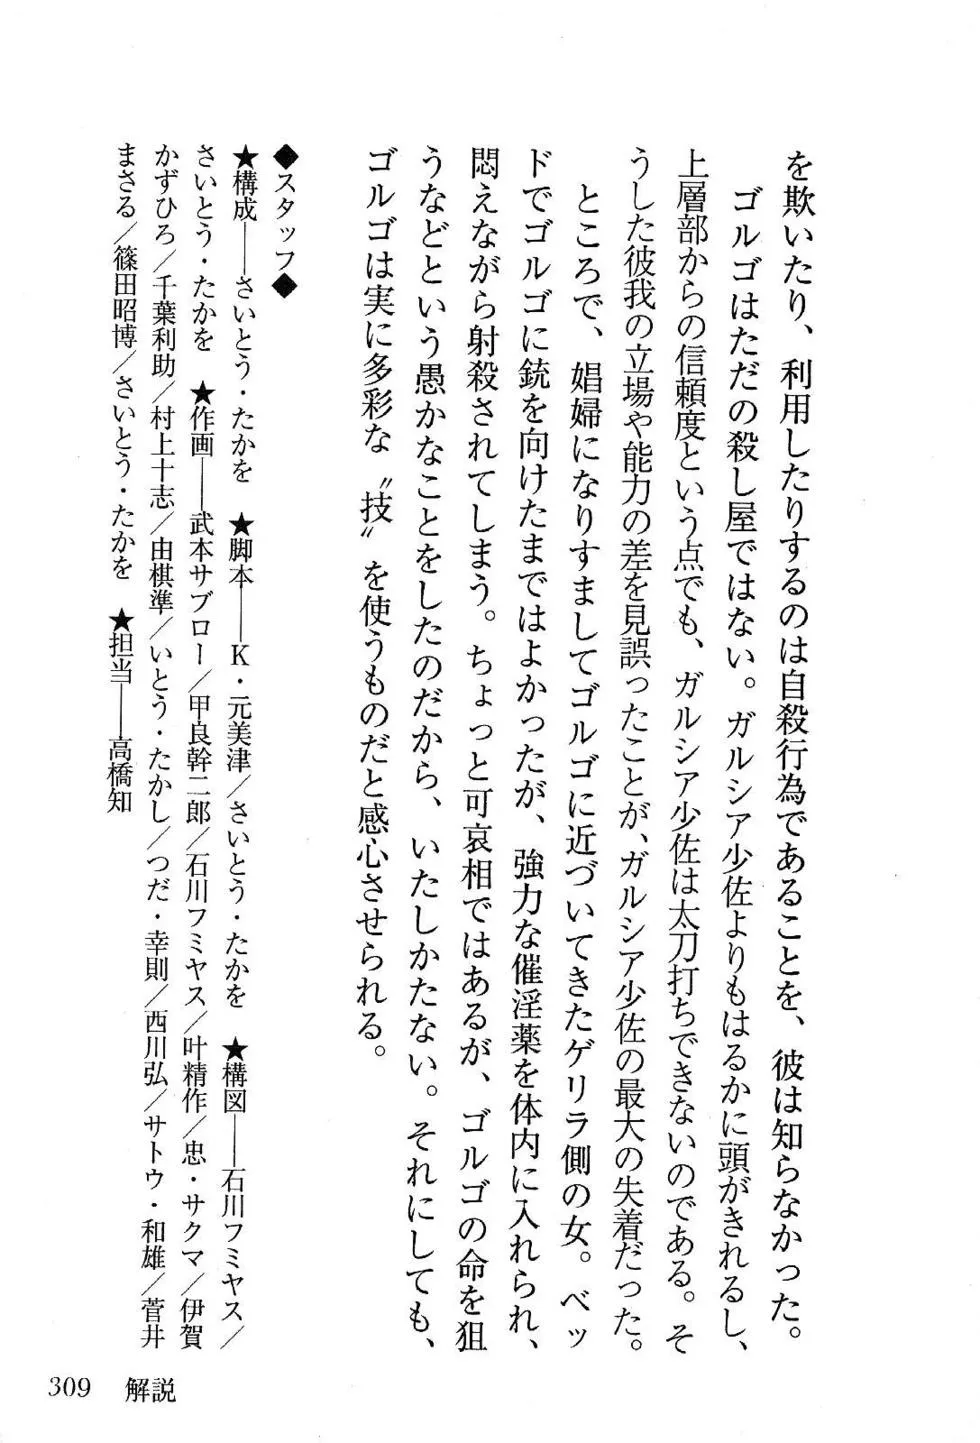 を欺いたり、利用したりするのは自殺行為であることを、彼は知らなかった。
ゴルゴはただの殺し屋ではない。ガルシア少佐よりもはるかに頭がきれるし、
上層部からの信頼度という点でも、ガルシア少佐は太刀打ちできないのである。そ
うした彼我の立場や能力の差を見誤ったことが、ガルシア少佐の最大の失着だった。
ところで、娼婦になりすましてゴルゴに近づいてきたゲリラ側の女。ベッ
ドでゴルゴに銃を向けたまではよかったが、強力な催淫薬を体内に入れられ、
悶えながら射殺されてしまう。ちょっと可哀相ではあるが、ゴルゴの命を狙
うなどという愚かなことをしたのだから、いたしかたない。それにしても、
ゴルゴは実に多彩な〝技〟を使うものだと感心させられる。
◆スタッフ◆
★構成――さいとう・たかを　★脚本――K・元美津／さいとう・たかを　★構図――石川フミヤス／
さいとう・たかを　★作画――武本サブロー／甲良幹二郎／石川フミヤス／叶精作／忠・サクマ／伊賀
かずひろ／千葉利助／村上十志／由棋準／いとう・たかし／つだ・幸則／西川弘／サトウ・和雄／菅井
まさる／篠田昭博／さいとう・たかを　★担当――高橋知
309　解説